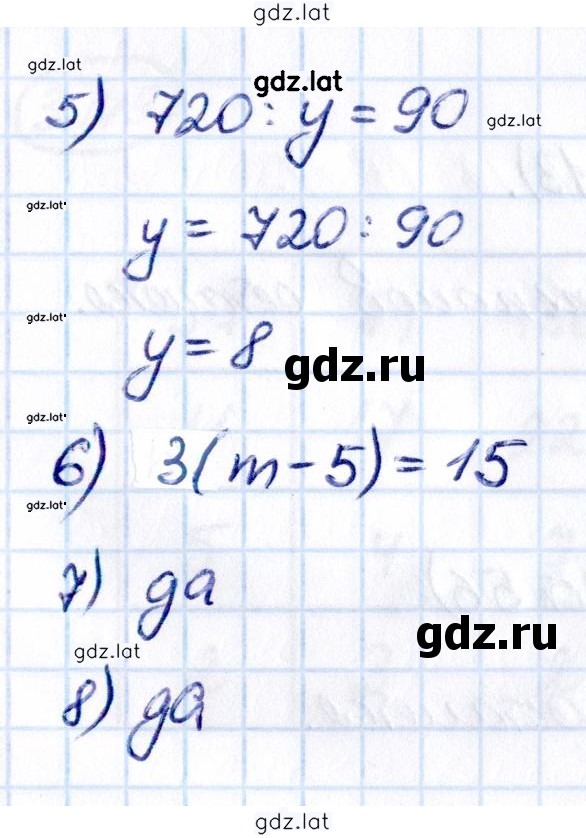 gdz.lat
gdz.lat
gdz.lat
5) 720 : y = 90
gdz.lat
gdz.lat
y = 720 : 90
gdz.lat
y = 8
gdz.ru
gdz.lat
6) 3(m - 5) = 15
gdz.lat
7) да
gdz.ru
gdz.lat
8) да
gdz.lat